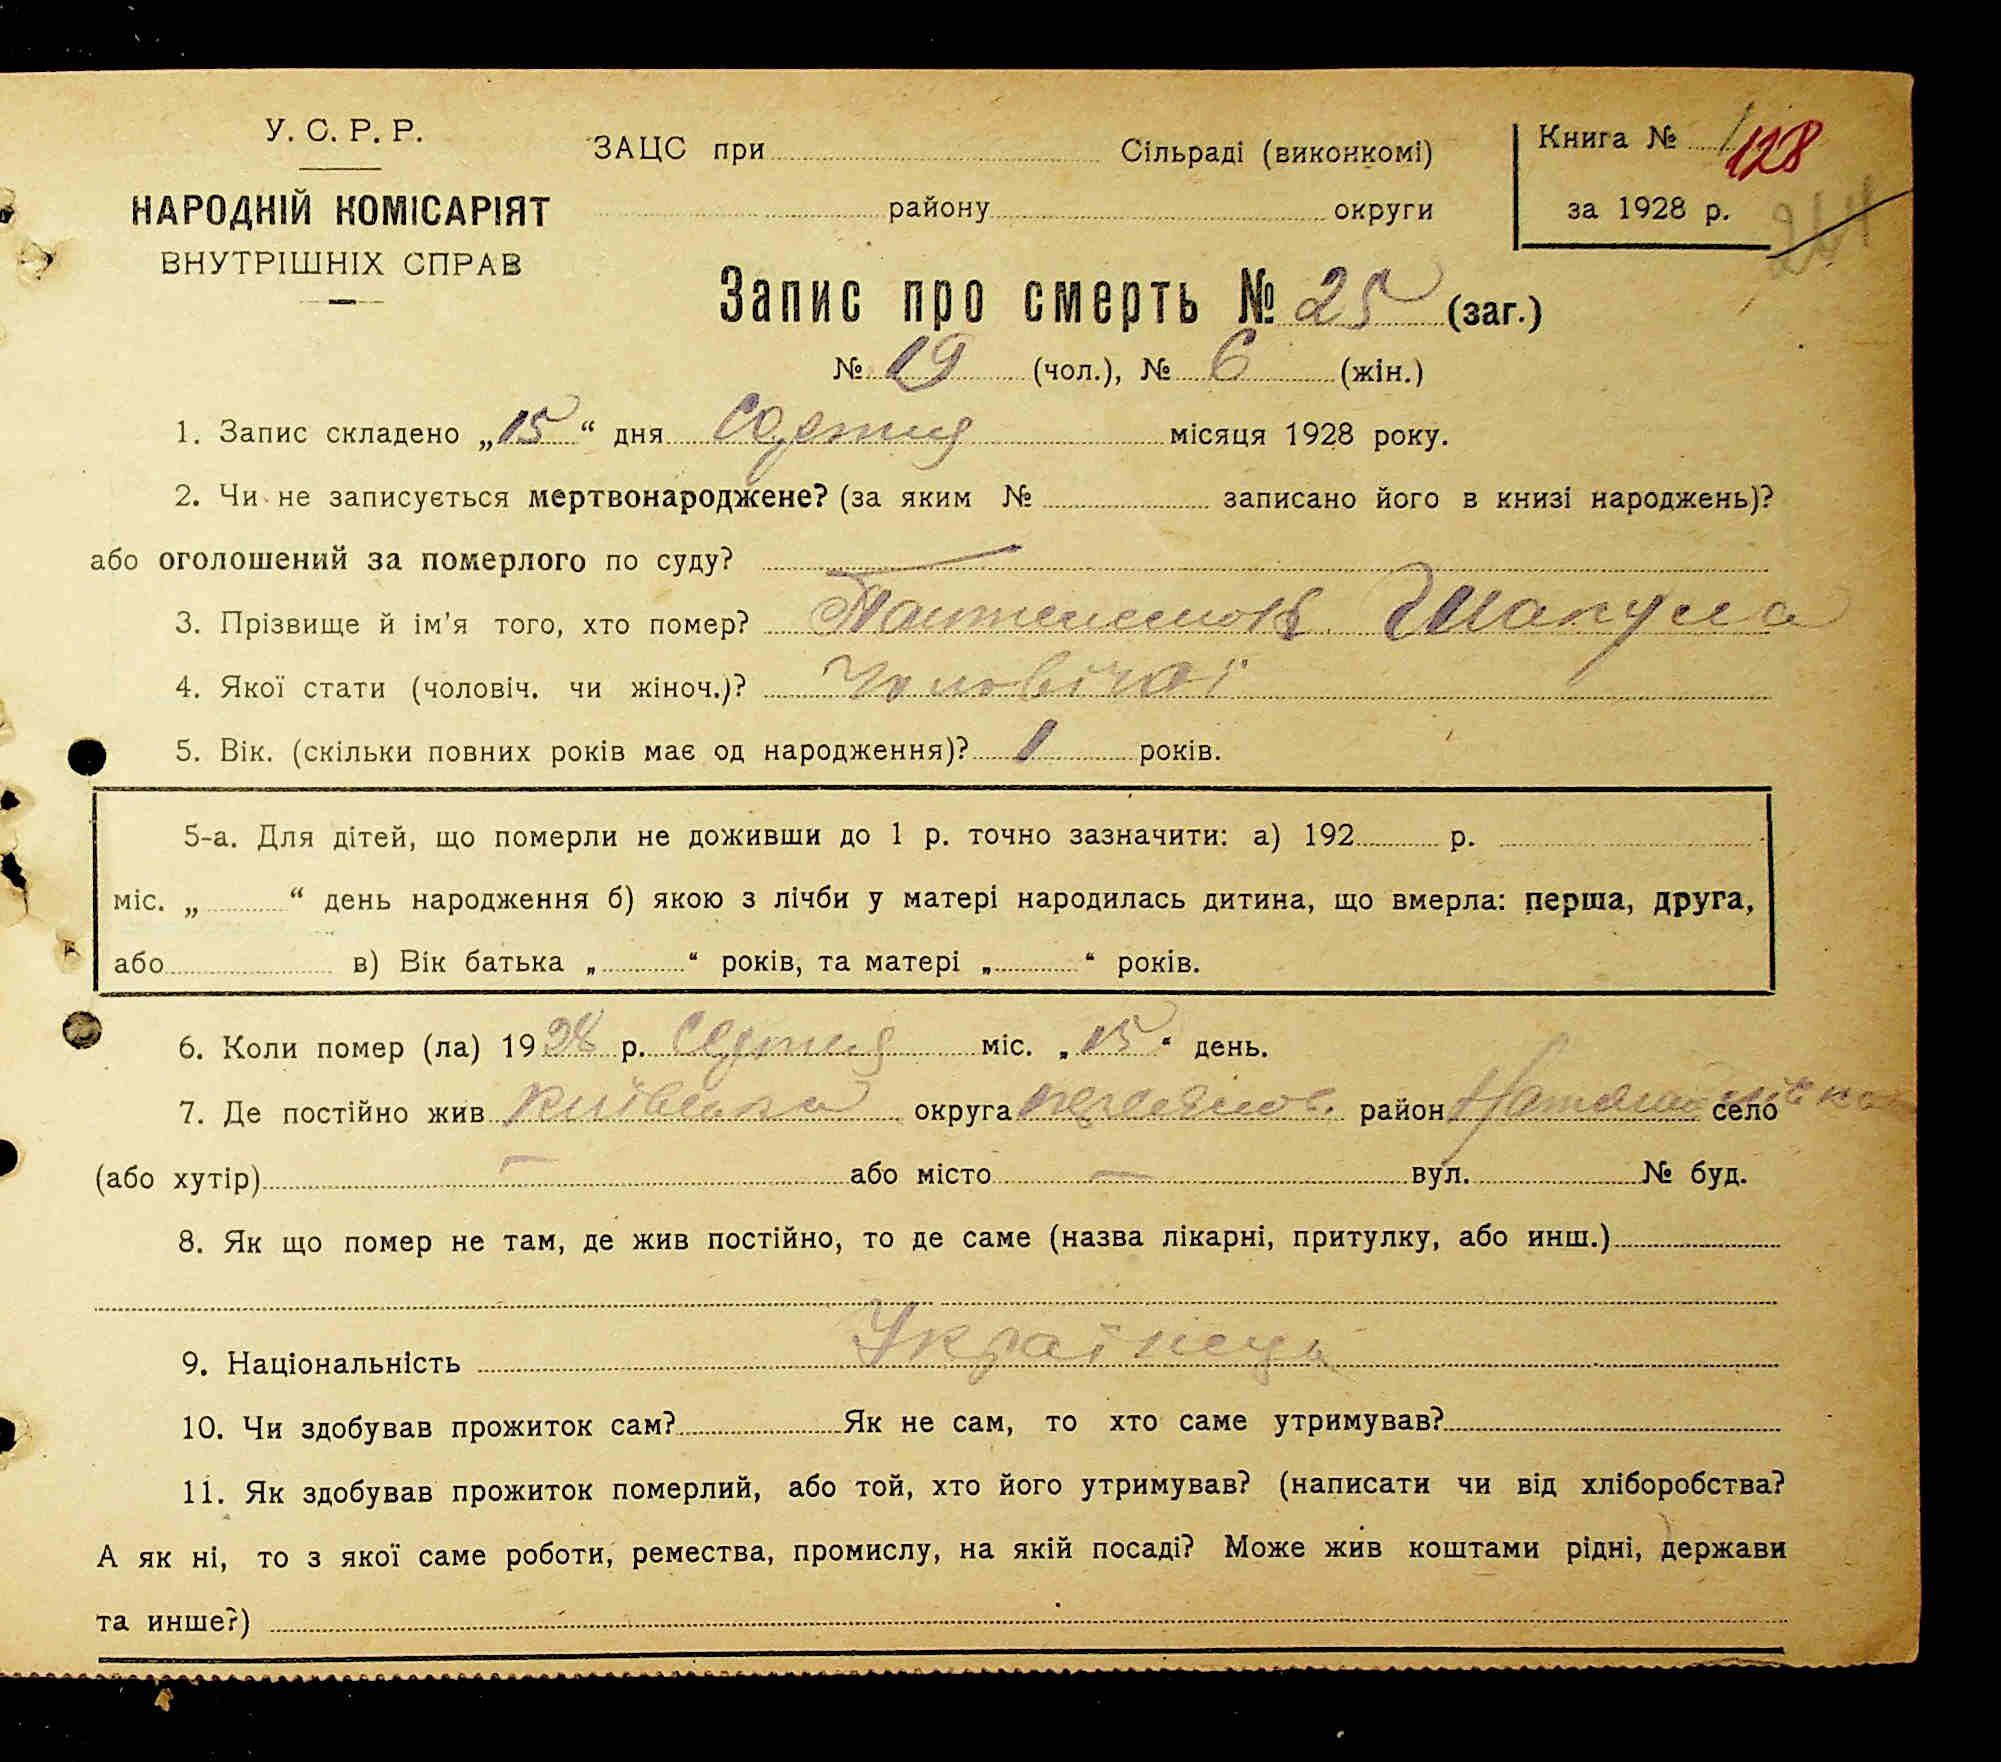 У. С. Р. Р.
НАРОДНІЙ КОМІСАРІЯТ
ВНУТРІШНІХ СПРАВ
ЗАЦС при Сільраді (виконкомі)
району округи
Книга № 1 128
за 1928 р.
Запис про смерть № 25 (заг.)
№ 19 (чол.), № 6 (жін.)
1. Запис складено „15“ дня Серпня місяця 1928 року.
2. Чи не записується мертвонароджене? (за яким № записано його в книзі народжень)?
або оголошений за померлого по суду?
3. Прізвище й ім'я того, хто помер? Шакула
4. Якої стати (чоловіч. чи жіноч.)? Чоловічої
5. Вік. (скільки повних років має од народження)? 1 років.
5-а. Для дітей, що померли не доживши до 1 р. точно зазначити: а) 192 р.
міс. „ “ день народження б) якою з лічби у матері народилась дитина, що вмерла: перша, друга,
або в) Вік батька „ “ років, та матері „ “ років.
6. Коли помер (ла) 1928 р. Серпня міс. „15“ день.
7. Де постійно жив Київська округа район село
(або хутір) — або місто — вул. № буд.
8. Як що помер не там, де жив постійно, то де саме (назва лікарні, притулку, або инш.)
9. Національність Українець
10. Чи здобував прожиток сам? Як не сам, то хто саме утримував?
11. Як здобував прожиток померлий, або той, хто його утримував? (написати чи від хліборобства?
А як ні, то з якої саме роботи, ремества, промислу, на якій посаді? Може жив коштами рідні, держави
та инше?)